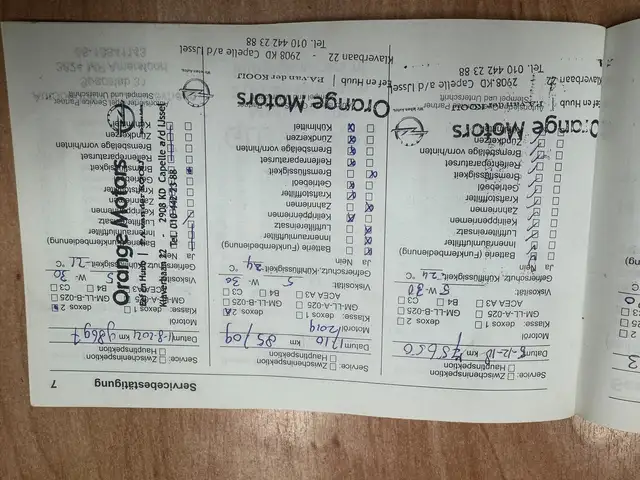 Servicebestätigung
7
Service: ☐ Zwischeninspektion
☐ Hauptinspektion
Datum 6-12-18 km 75650
Motoröl
Klasse: ☐ dexos 1 ☐ dexos 2
☐ GM-LL-A-025 ☐ GM-LL-B-025
☐ ACEA A3 ☐ B4 ☐ C3
Viskosität 5 W- 30
Gefrierschutz-Kühlflüssigkeit -24 °C
Ja Nein
Batterie (Funkfernbedienung)
Innenraumluftfilter
Luftfiltereinsatz
Keilrippenriemen
Zahnriemen
Kraftstofffilter
Getriebeöl
Bremsflüssigkeit
Reifenreparaturset
Bremsbeläge vorn/hinten
Zündkerzen
Orange Motors
Stempel und Unterschrift
2908 KD Capelle a/d IJssel
Tel. 010 442 23 88
Klaverbaan 22 -
Service: ☐ Zwischeninspektion
☐ Hauptinspektion
Datum km 85709
Motoröl 2019
Klasse: ☐ dexos 1 ☒ dexos 2
☐ GM-LL-A-025 ☐ GM-LL-B-025
☐ ACEA A3 ☐ B4 ☐ C3
Viskosität 5 W- 30
Gefrierschutz-Kühlflüssigkeit -24 °C
Ja Nein
Batterie (Funkfernbedienung)
Innenraumluftfilter
Luftfiltereinsatz
Keilrippenriemen
Zahnriemen
Kraftstofffilter
Getriebeöl
Bremsflüssigkeit
Reifenreparaturset
Bremsbeläge vorn/hinten
Zündkerzen
Kühlmittel
Orange Motors
Eef en Huub | P.A. van der KOOIJ
Klaverbaan 22 - 2908 KD Capelle a/d IJssel
Tel. 010 442 23 88
Service: ☐ Zwischeninspektion
☐ Hauptinspektion
Datum 11-8-2021 km 98697
Motoröl
Klasse: ☐ dexos 1 ☒ dexos 2
☐ GM-LL-A-025 ☐ GM-LL-B-025
B4 ☐ C3
Viskosität 5 W- 30
Gefrierschutz-Kühlflüssigkeit -24 °C
Ja Nein
Reifenreparaturset
Bremsbeläge vorn/hinten
Zündkerzen
Stempel und Unterschrift
Orange Motors
Eef en Huub |
Klaverbaan 22 - 2908 KD Capelle a/d IJssel
Tel. 010-442-23-88